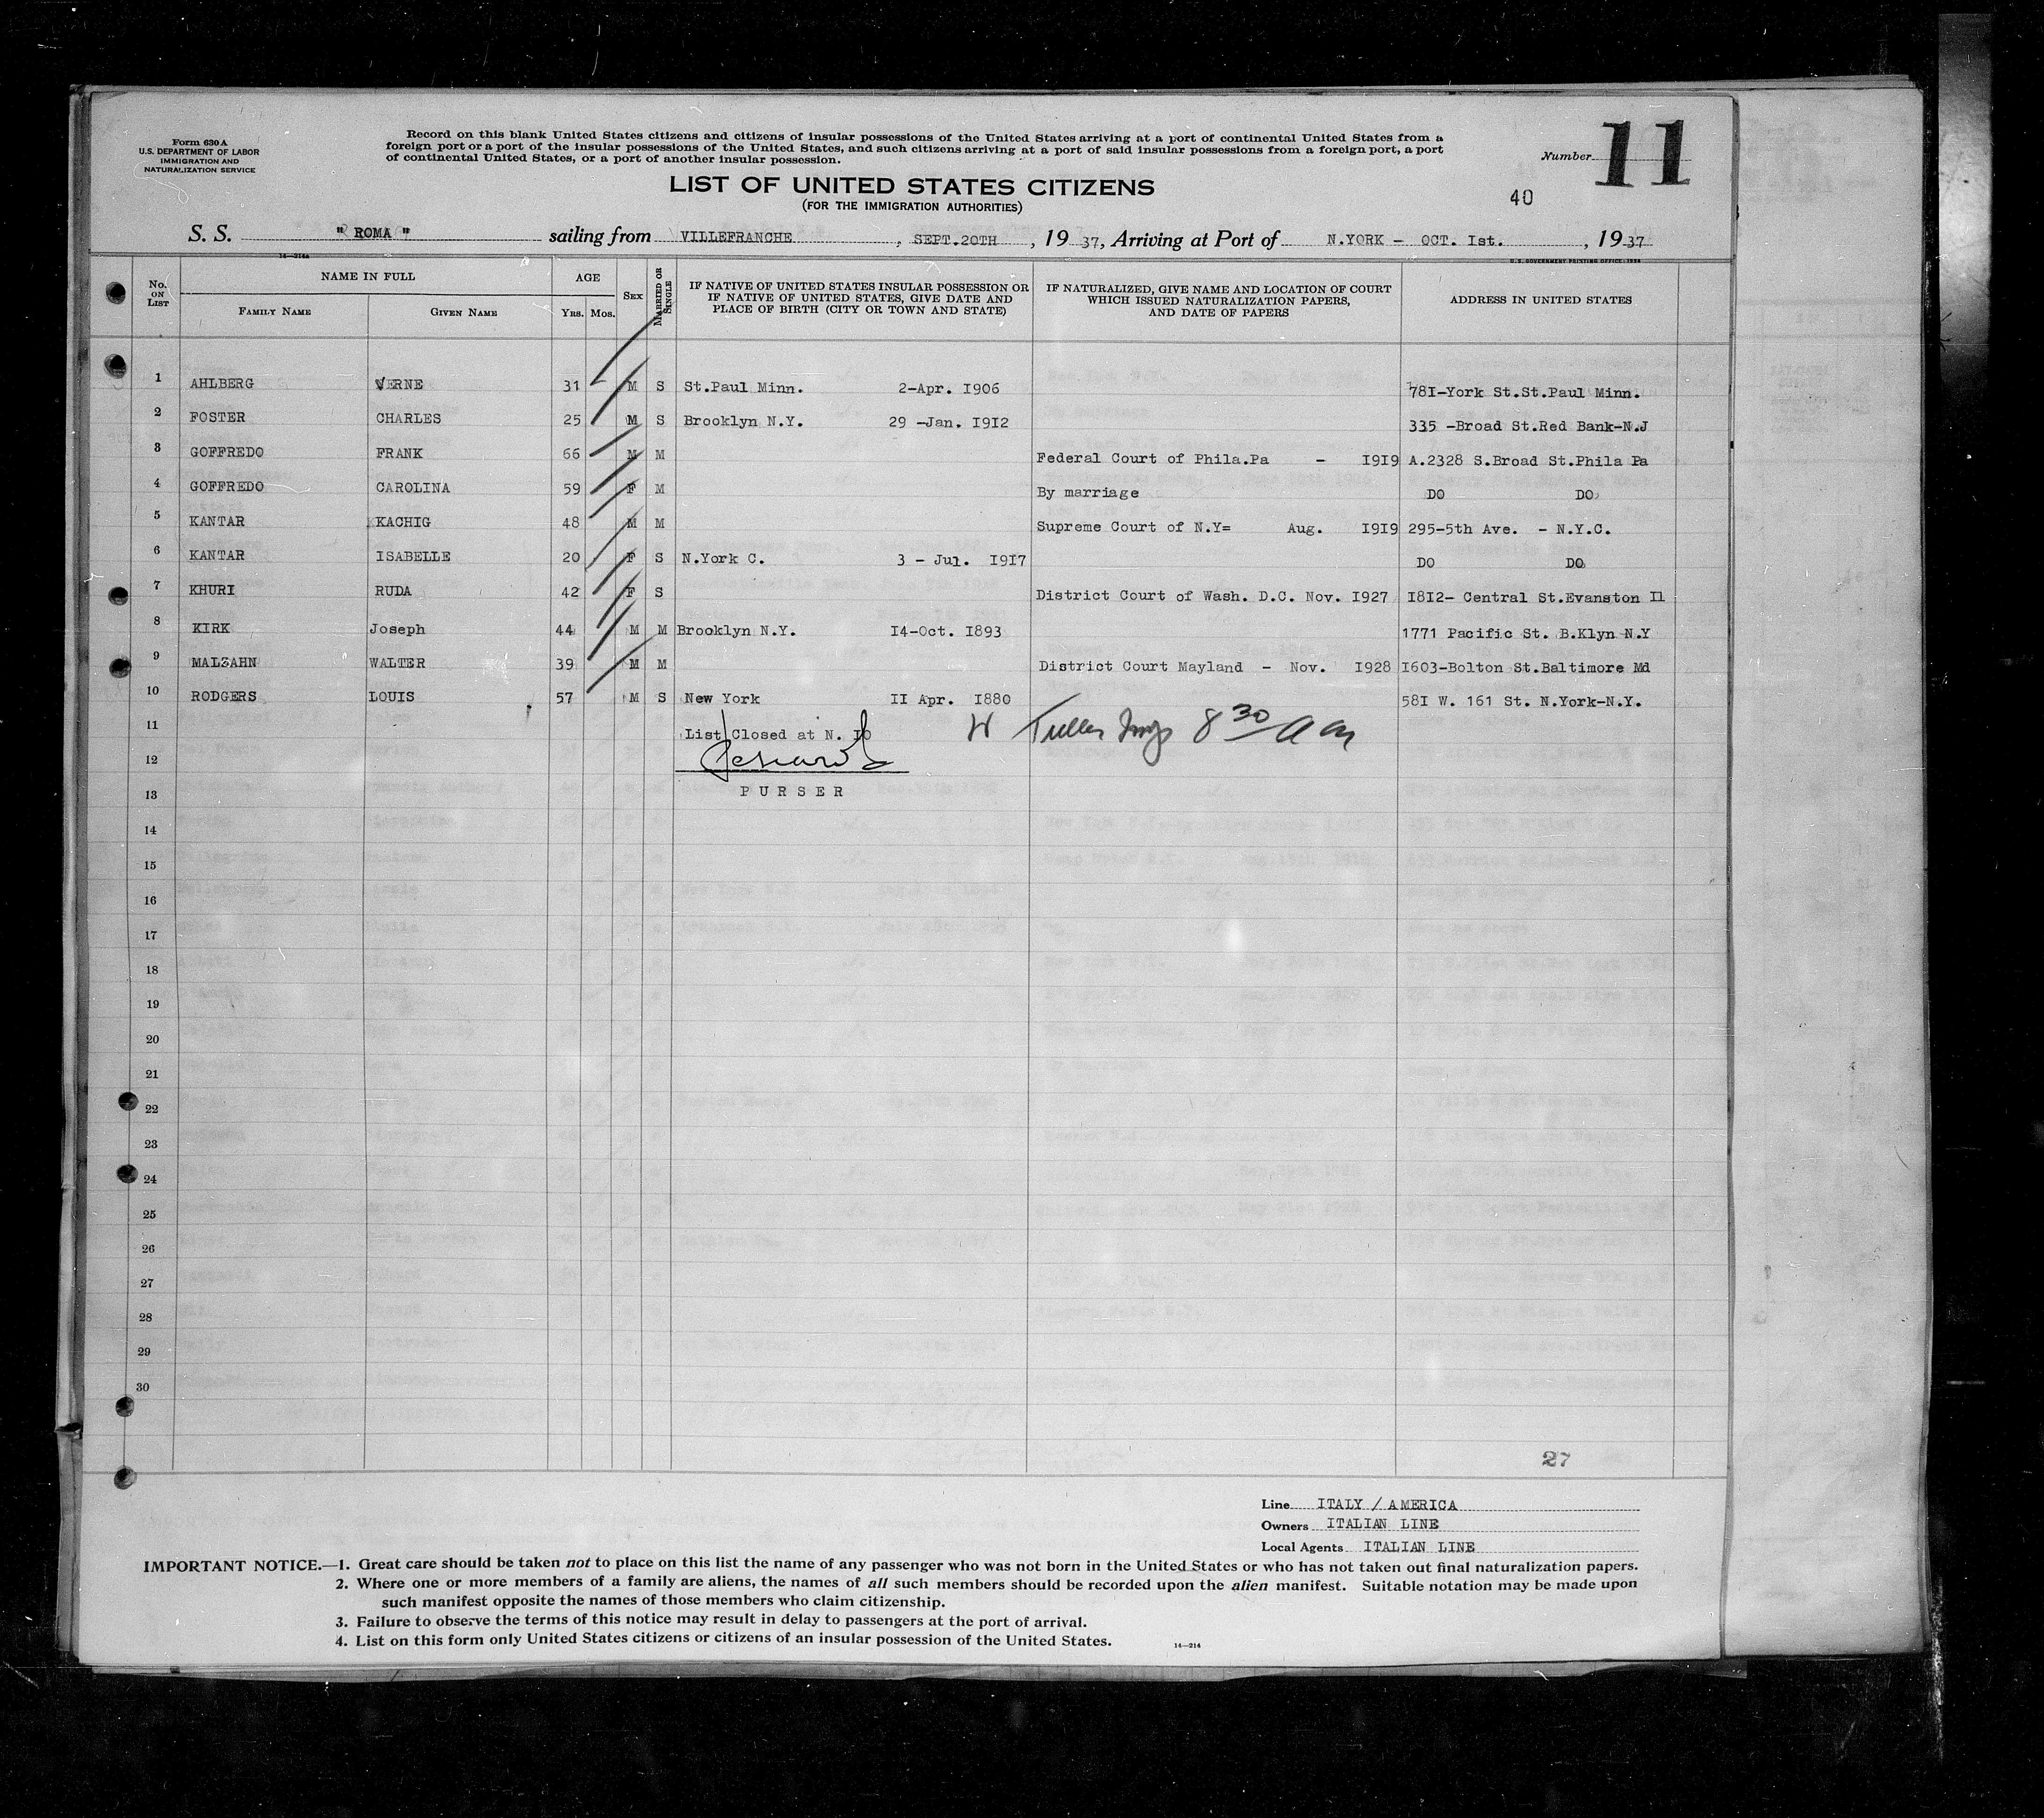 Form 630 A
U.S. DEPARTMENT OF LABOR
IMMIGRATION AND
NATURALIZATION SERVICE
Record on this blank United States citizens and citizens of insular possessions of the United States arriving at a port of continental United States from a
foreign port or a port of the insular possessions of the United States, and such citizens arriving at a port of said insular possessions from a foreign port, a port
of continental United States, or a port of another insular possession.
Number 11
LIST OF UNITED STATES CITIZENS
(FOR THE IMMIGRATION AUTHORITIES)
40
S. S. " ROMA " sailing from VILLEFRANCHE , SEPT.20TH , 19 37, Arriving at Port of N.YORK - OCT. Ist. , 19 37
14—214A
U.S. GOVERNMENT PRINTING OFFICE: 1934
No. ON LIST NAME IN FULL AGE SEX MARRIED OR SINGLE IF NATIVE OF UNITED STATES INSULAR POSSESSION OR IF NATIVE OF UNITED STATES, GIVE DATE AND PLACE OF BIRTH (CITY OR TOWN AND STATE) IF NATURALIZED, GIVE NAME AND LOCATION OF COURT WHICH ISSUED NATURALIZATION PAPERS, AND DATE OF PAPERS ADDRESS IN UNITED STATES
FAMILY NAME GIVEN NAME YRS. MOS.
1 AHLBERG VERNE 31 M S St.Paul Minn. 2-Apr. I906 78I-York St.St.Paul Minn.
2 FOSTER CHARLES 25 M S Brooklyn N.Y. 29 -Jan. I9I2 335 -Broad St.Red Bank-N.J
3 GOFFREDO FRANK 66 M M Federal Court of Phila.Pa - I9I9 A.2328 S.Broad St.Phila Pa
4 GOFFREDO CAROLINA 59 F M By marriage DO DO
5 KANTAR KACHIG 48 M M Supreme Court of N.Y= Aug. I9I9 295-5th Ave. - N.Y.C.
6 KANTAR ISABELLE 20 F S N.York C. 3 - Jul. I9I7 DO DO
7 KHURI RUDA 42 F S District Court of Wash. D.C. Nov. I927 I8I2- Central St.Evanston Il
8 KIRK Joseph 44 M M Brooklyn N.Y. I4-Oct. I893 1771 Pacific St. B.Klyn N.Y
9 MALZAHN WALTER 39 M M District Court Mayland - Nov. I928 I603-Bolton St.Baltimore Md
10 RODGERS LOUIS 57 M S New York II Apr. I880 58I W. 161 St. N.York-N.Y.
11 List Closed at N. IO Tuller Insp 8 30 AM
12
13 PURSER
14
15
16
17
18
19
20
21
22
23
24
25
26
27
28
29
30
27
Line ITALY / AMERICA
Owners ITALIAN LINE
Local Agents ITALIAN LINE
IMPORTANT NOTICE.—1. Great care should be taken not to place on this list the name of any passenger who was not born in the United States or who has not taken out final naturalization papers.
2. Where one or more members of a family are aliens, the names of all such members should be recorded upon the alien manifest. Suitable notation may be made upon
such manifest opposite the names of those members who claim citizenship.
3. Failure to observe the terms of this notice may result in delay to passengers at the port of arrival.
4. List on this form only United States citizens or citizens of an insular possession of the United States.
14—214